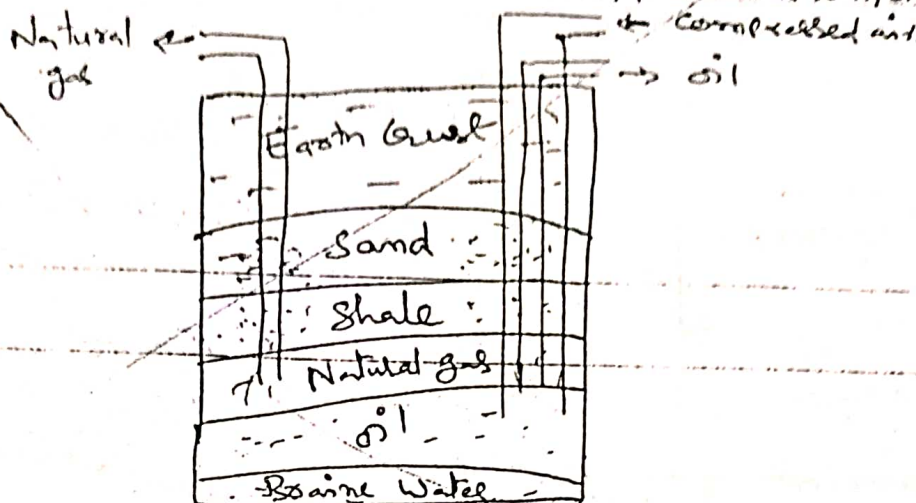 Natural
gas
Compressed air
oil
Earth Crust
Sand
Shale
Natural gas
oil
Braine Water